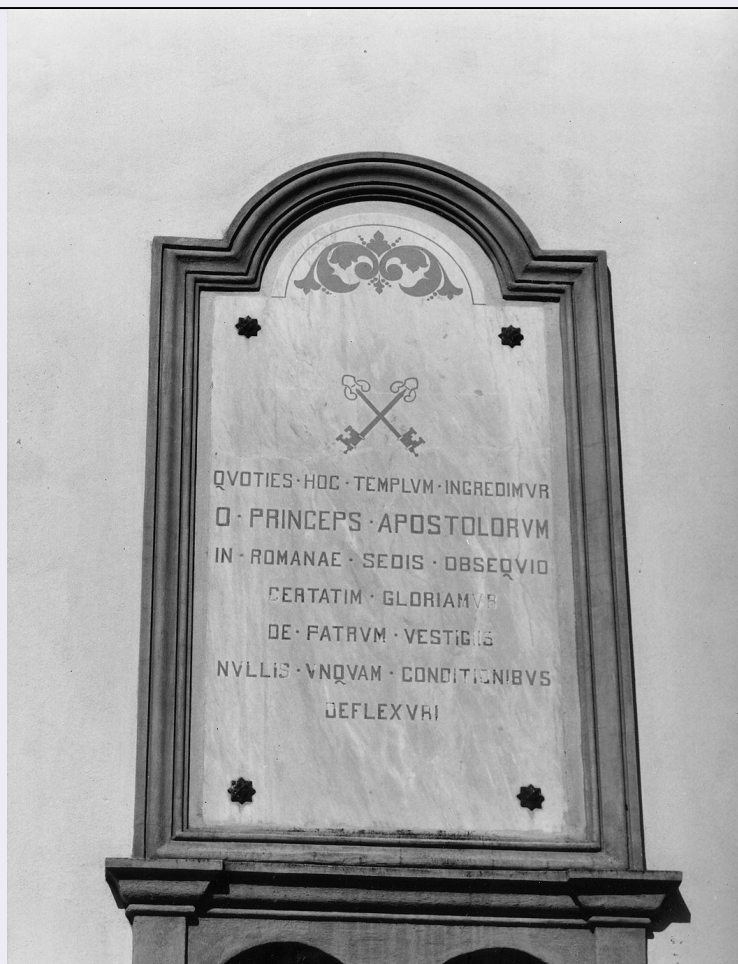 QVOTIES·HOC·TEMPLVM·INGREDIMVR
O·PRINCEPS·APOSTOLORVM
IN·ROMANAE·SEDIS·OBSEQVIO
CERTATIM·GLORIAMVR
DE·PATRVM·VESTIGIIS
NVLLIS·VNQVAM·CONDITIONIBVS
DEFLEXVRI